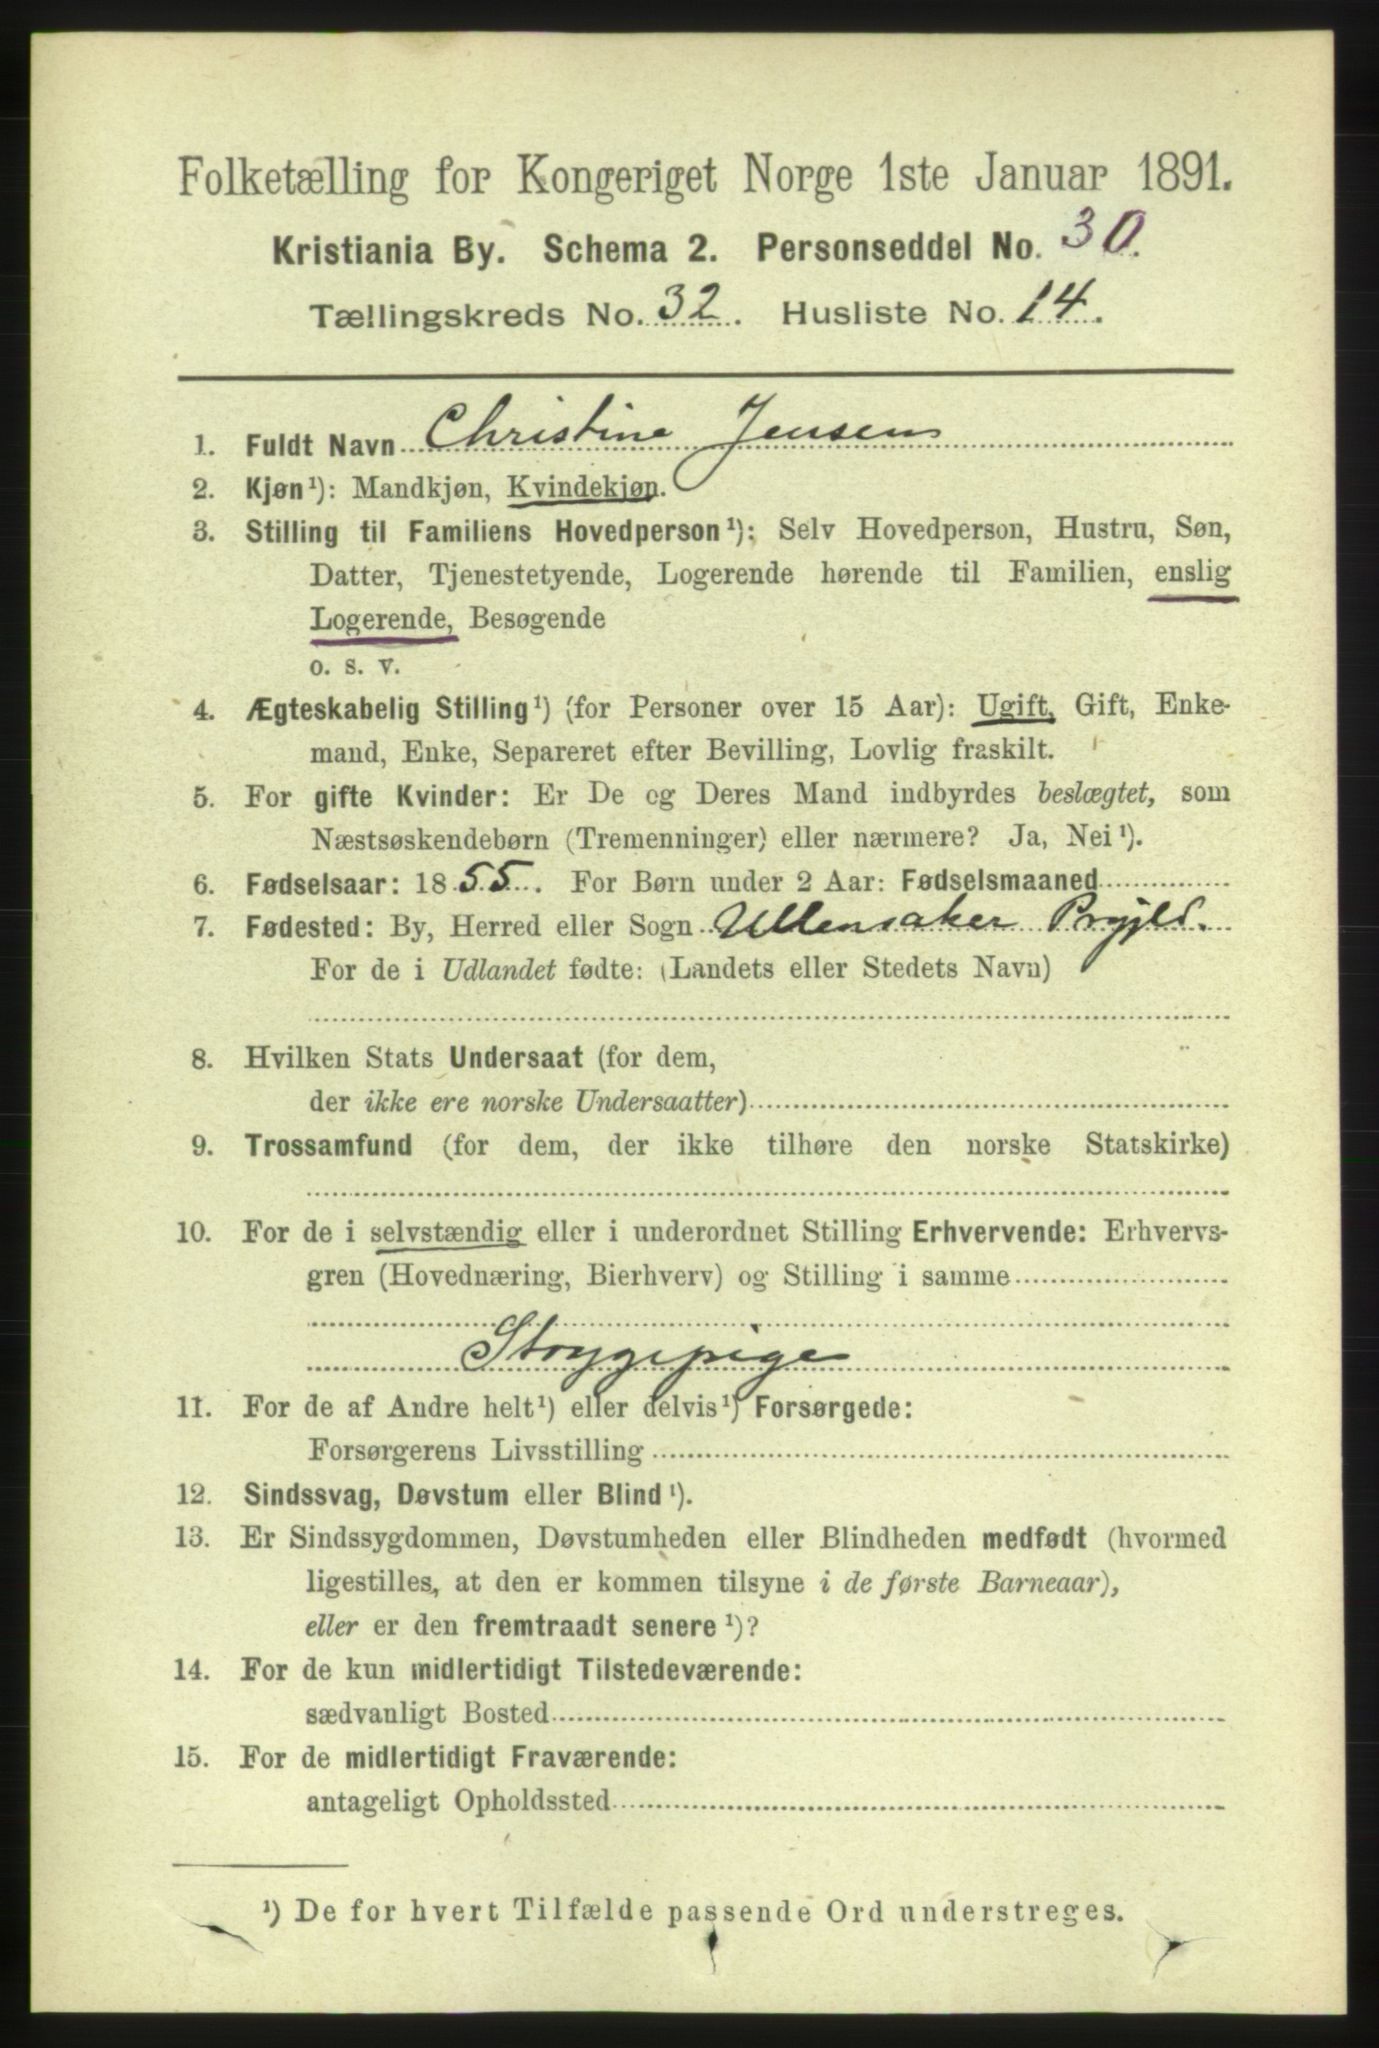 Folketælling for Kongeriget Norge 1ste Januar 1891.
Kristiania By. Schema 2. Personseddel No. 30.
Tællingskreds No. 32. Husliste No. 14.
1. Fuldt Navn Christine Jensen
2. Kjøn¹): Mandkjøn, Kvindekjøn.
3. Stilling til Familiens Hovedperson¹): Selv Hovedperson, Hustru, Søn,
Datter, Tjenestetyende, Logerende hørende til Familien, enslig
Logerende, Besøgende
o. s. v.
4. Ægteskabelig Stilling¹) (for Personer over 15 Aar): Ugift, Gift, Enke-
mand, Enke, Separeret efter Bevilling, Lovlig fraskilt.
5. For gifte Kvinder: Er De og Deres Mand indbyrdes beslægtet, som
Næstsøskendebørn (Tremenninger) eller nærmere? Ja, Nei¹).
6. Fødselsaar: 1855. For Børn under 2 Aar: Fødselsmaaned
7. Fødested: By, Herred eller Sogn Ullensaker Prgjld.
For de i Udlandet fødte: (Landets eller Stedets Navn)
8. Hvilken Stats Undersaat (for dem,
der ikke ere norske Undersaatter)
9. Trossamfund (for dem, der ikke tilhøre den norske Statskirke)
10. For de i selvstændig eller i underordnet Stilling Erhvervende: Erhvervs-
gren (Hovednæring, Bierhverv) og Stilling i samme
Strygepige
11. For de af Andre helt¹) eller delvis¹) Forsørgede:
Forsørgerens Livsstilling
12. Sindssvag, Døvstum eller Blind¹).
13. Er Sindssygdommen, Døvstumheden eller Blindheden medfødt (hvormed
ligestilles, at den er kommen tilsyne i de første Barneaar),
eller er den fremtraadt senere¹)?
14. For de kun midlertidigt Tilstedeværende:
sædvanligt Bosted
15. For de midlertidigt Fraværende:
antageligt Opholdssted
¹) De for hvert Tilfælde passende Ord understreges.